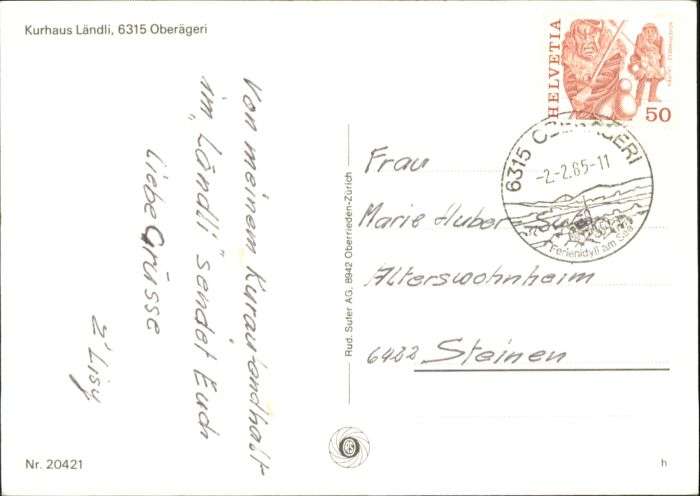 Kurhaus Ländli, 6315 Oberägeri
Von meinem Kuraufendhalt
im "Ländli" sendet Euch
Liebe Grüsse
z'Lisy
Nr. 20421
Rud. Suter AG, 8942 Oberrieden-Zürich
HELVETIA
50
6315 OBERÄGERI
-2.-2.85-11
Ferienidyll am See
Frau
Marie Huber
Alterswohnheim
6422 Steinen
h